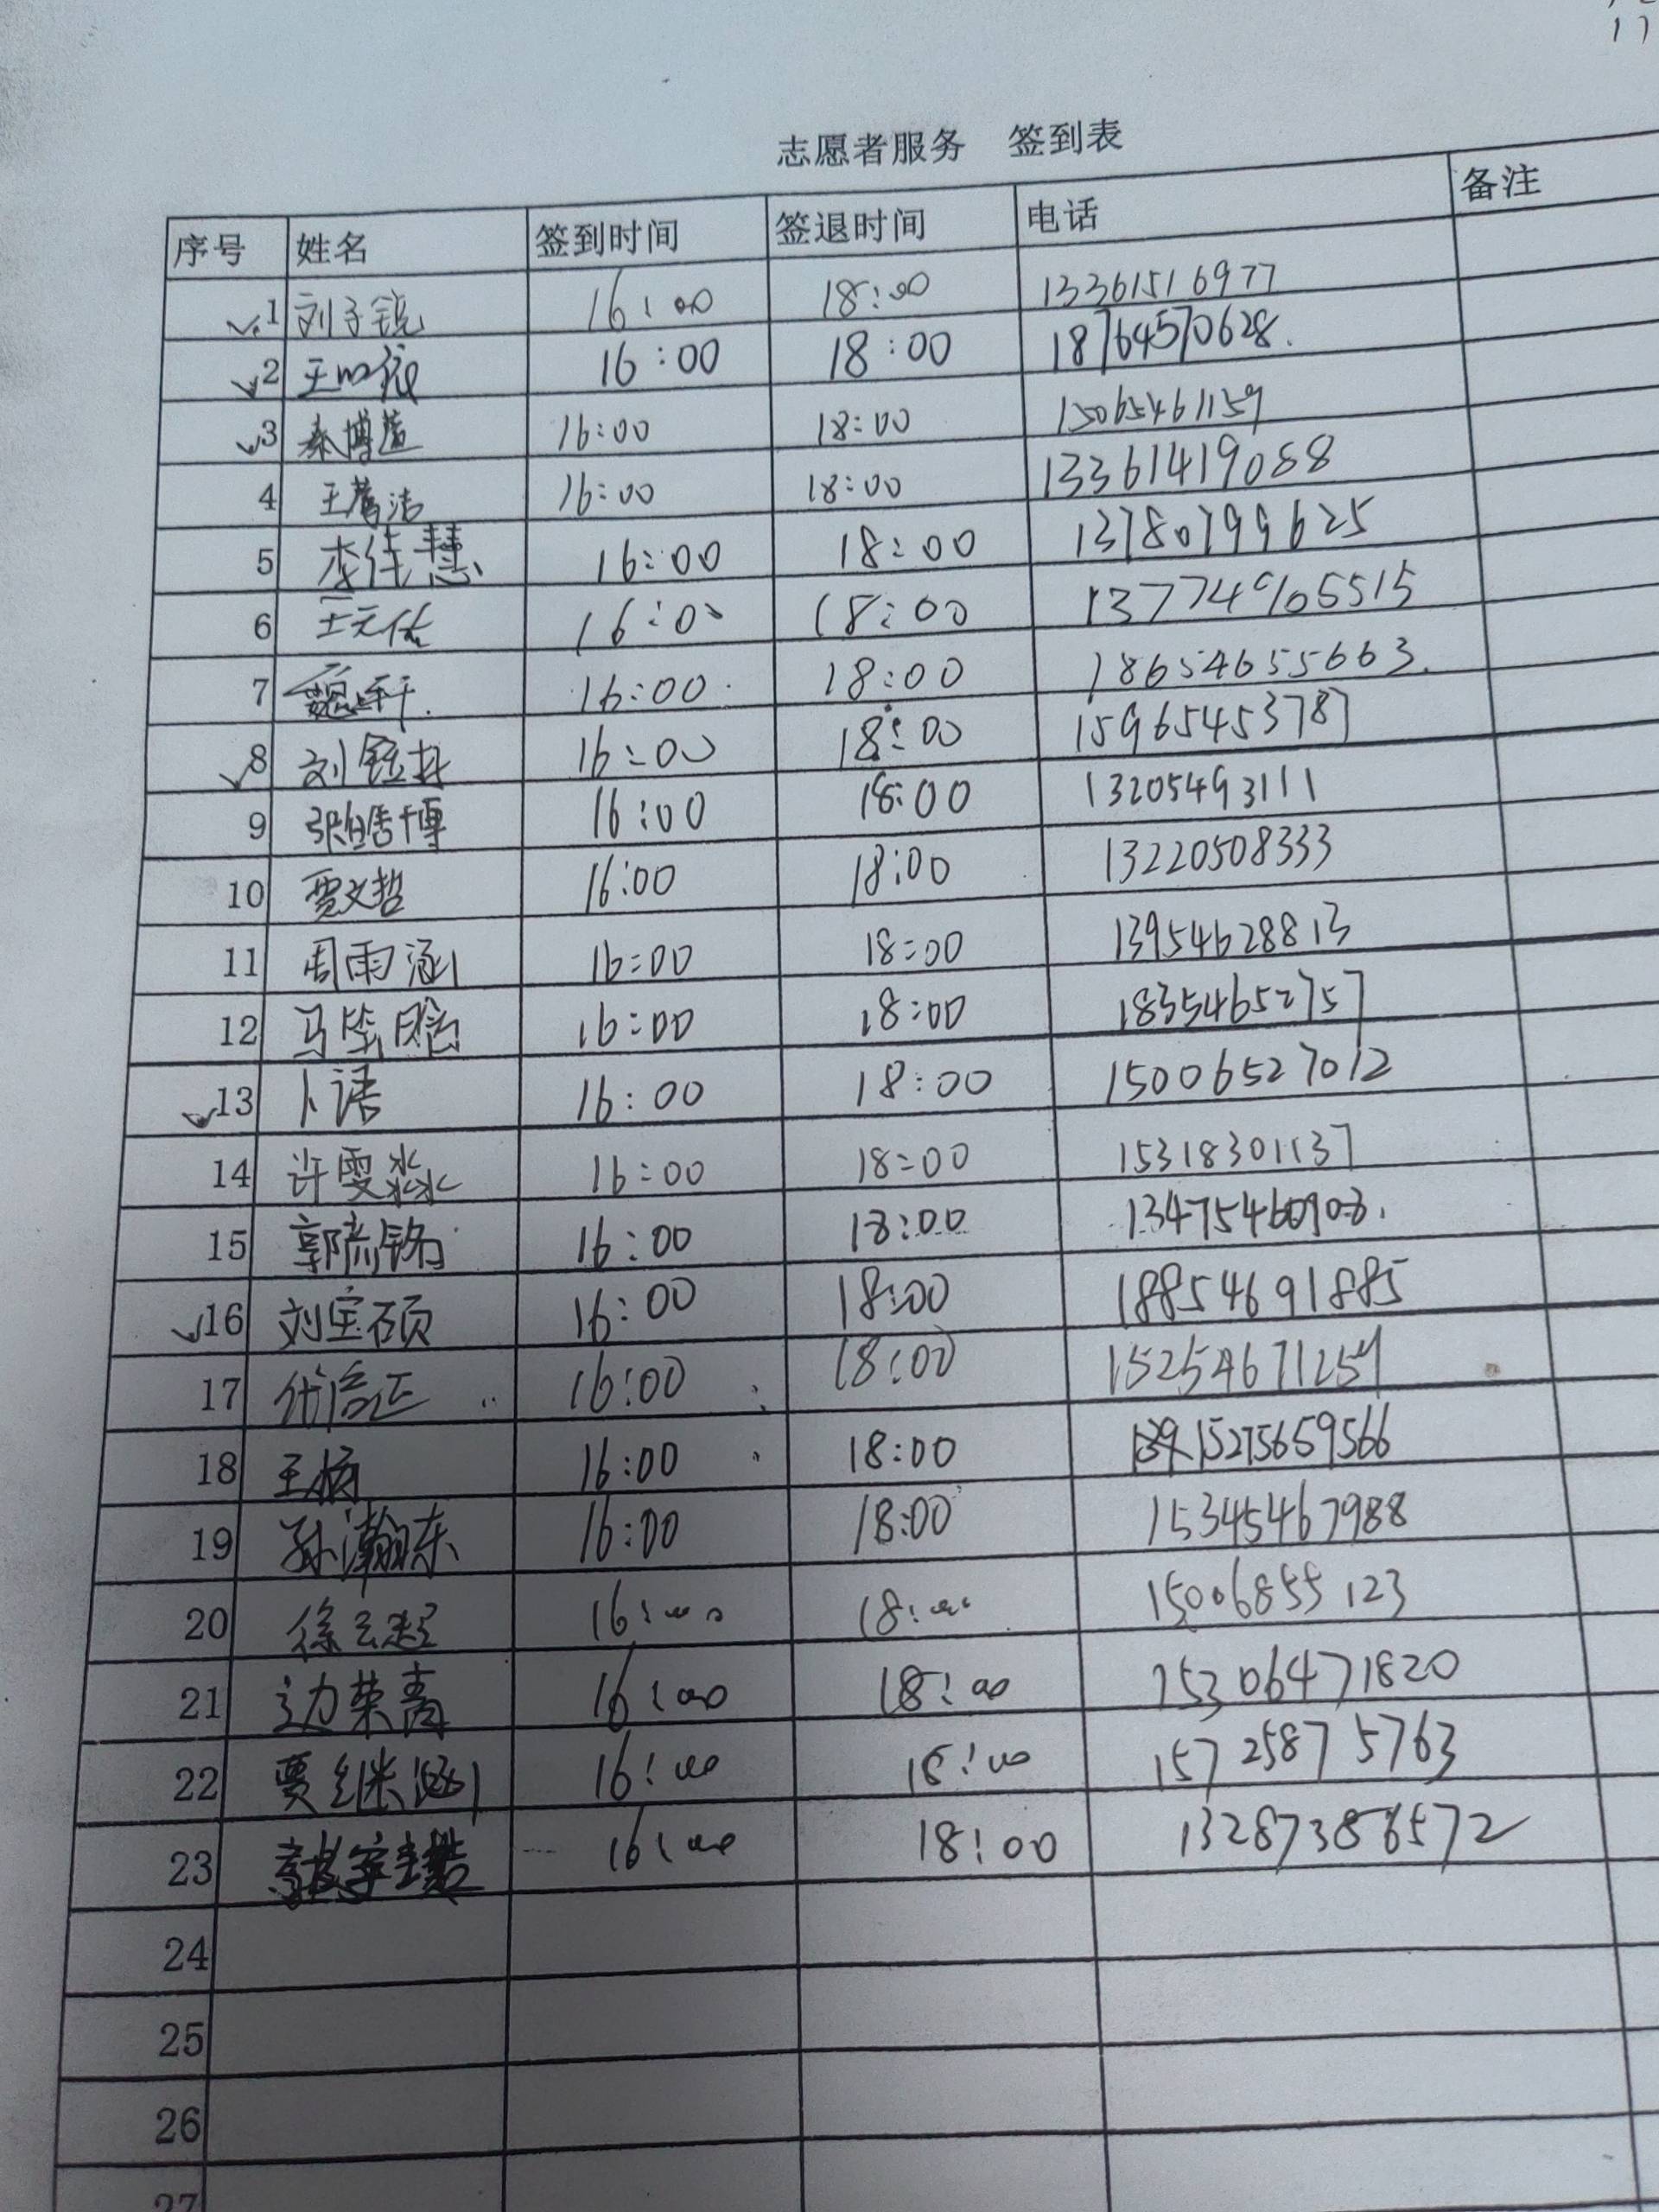 17
志愿者服务 签到表
序号 姓名 签到时间 签退时间 电话 备注
1 刘子锐 16:00 18:00 13361516977
2 王 16:00 18:00 18764570628.
3 秦博 16:00 18:00 15065461159
4 王 洁 16:00 18:00 13361419088
5 李佳慧 16:00 18:00 13780799625
6 王元佑 16:00 18:00
7 魏 16:00 18:00 18654655663.
8 刘 16:00 18:00 15965453787
9 张皓博 16:00 18:00 13205493111
10 贾文哲 16:00 18:00 13220508333
11 周雨涵 16:00 18:00 13954628813
12 马 晗 16:00 18:00 18354652757
13 卜诺 16:00 18:00 15006527012
14 许雯淼 16:00 18:00 15318301137
15 郭 铭 16:00 18:00
16 刘宝硕 16:00 18:00 18854691885
17 代信正 16:00 18:00 15254671259
18 王杨 16:00 18:00 15275659566
19 孙瀚东 16:00 18:00 15345467988
20 徐云超 16:00 18:00 15006855123
21 边荣青 16:00 18:00 15306471820
22 贾继涵 16:00 18:00 15725875763
23 16:00 18:00 13287386572
24
25
26
27